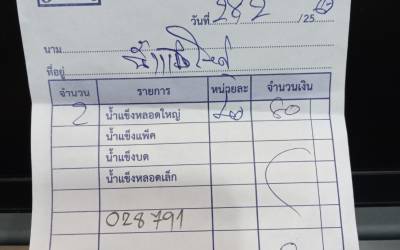 วันที่ 28 2 /25
นาม
ที่อยู่
จำนวน รายการ หน่วยละ จำนวนเงิน
2 น้ำแข็งหลอดใหญ่ 40 80
น้ำแข็งแพ็ค
น้ำแข็งบด
น้ำแข็งหลอดเล็ก
028791